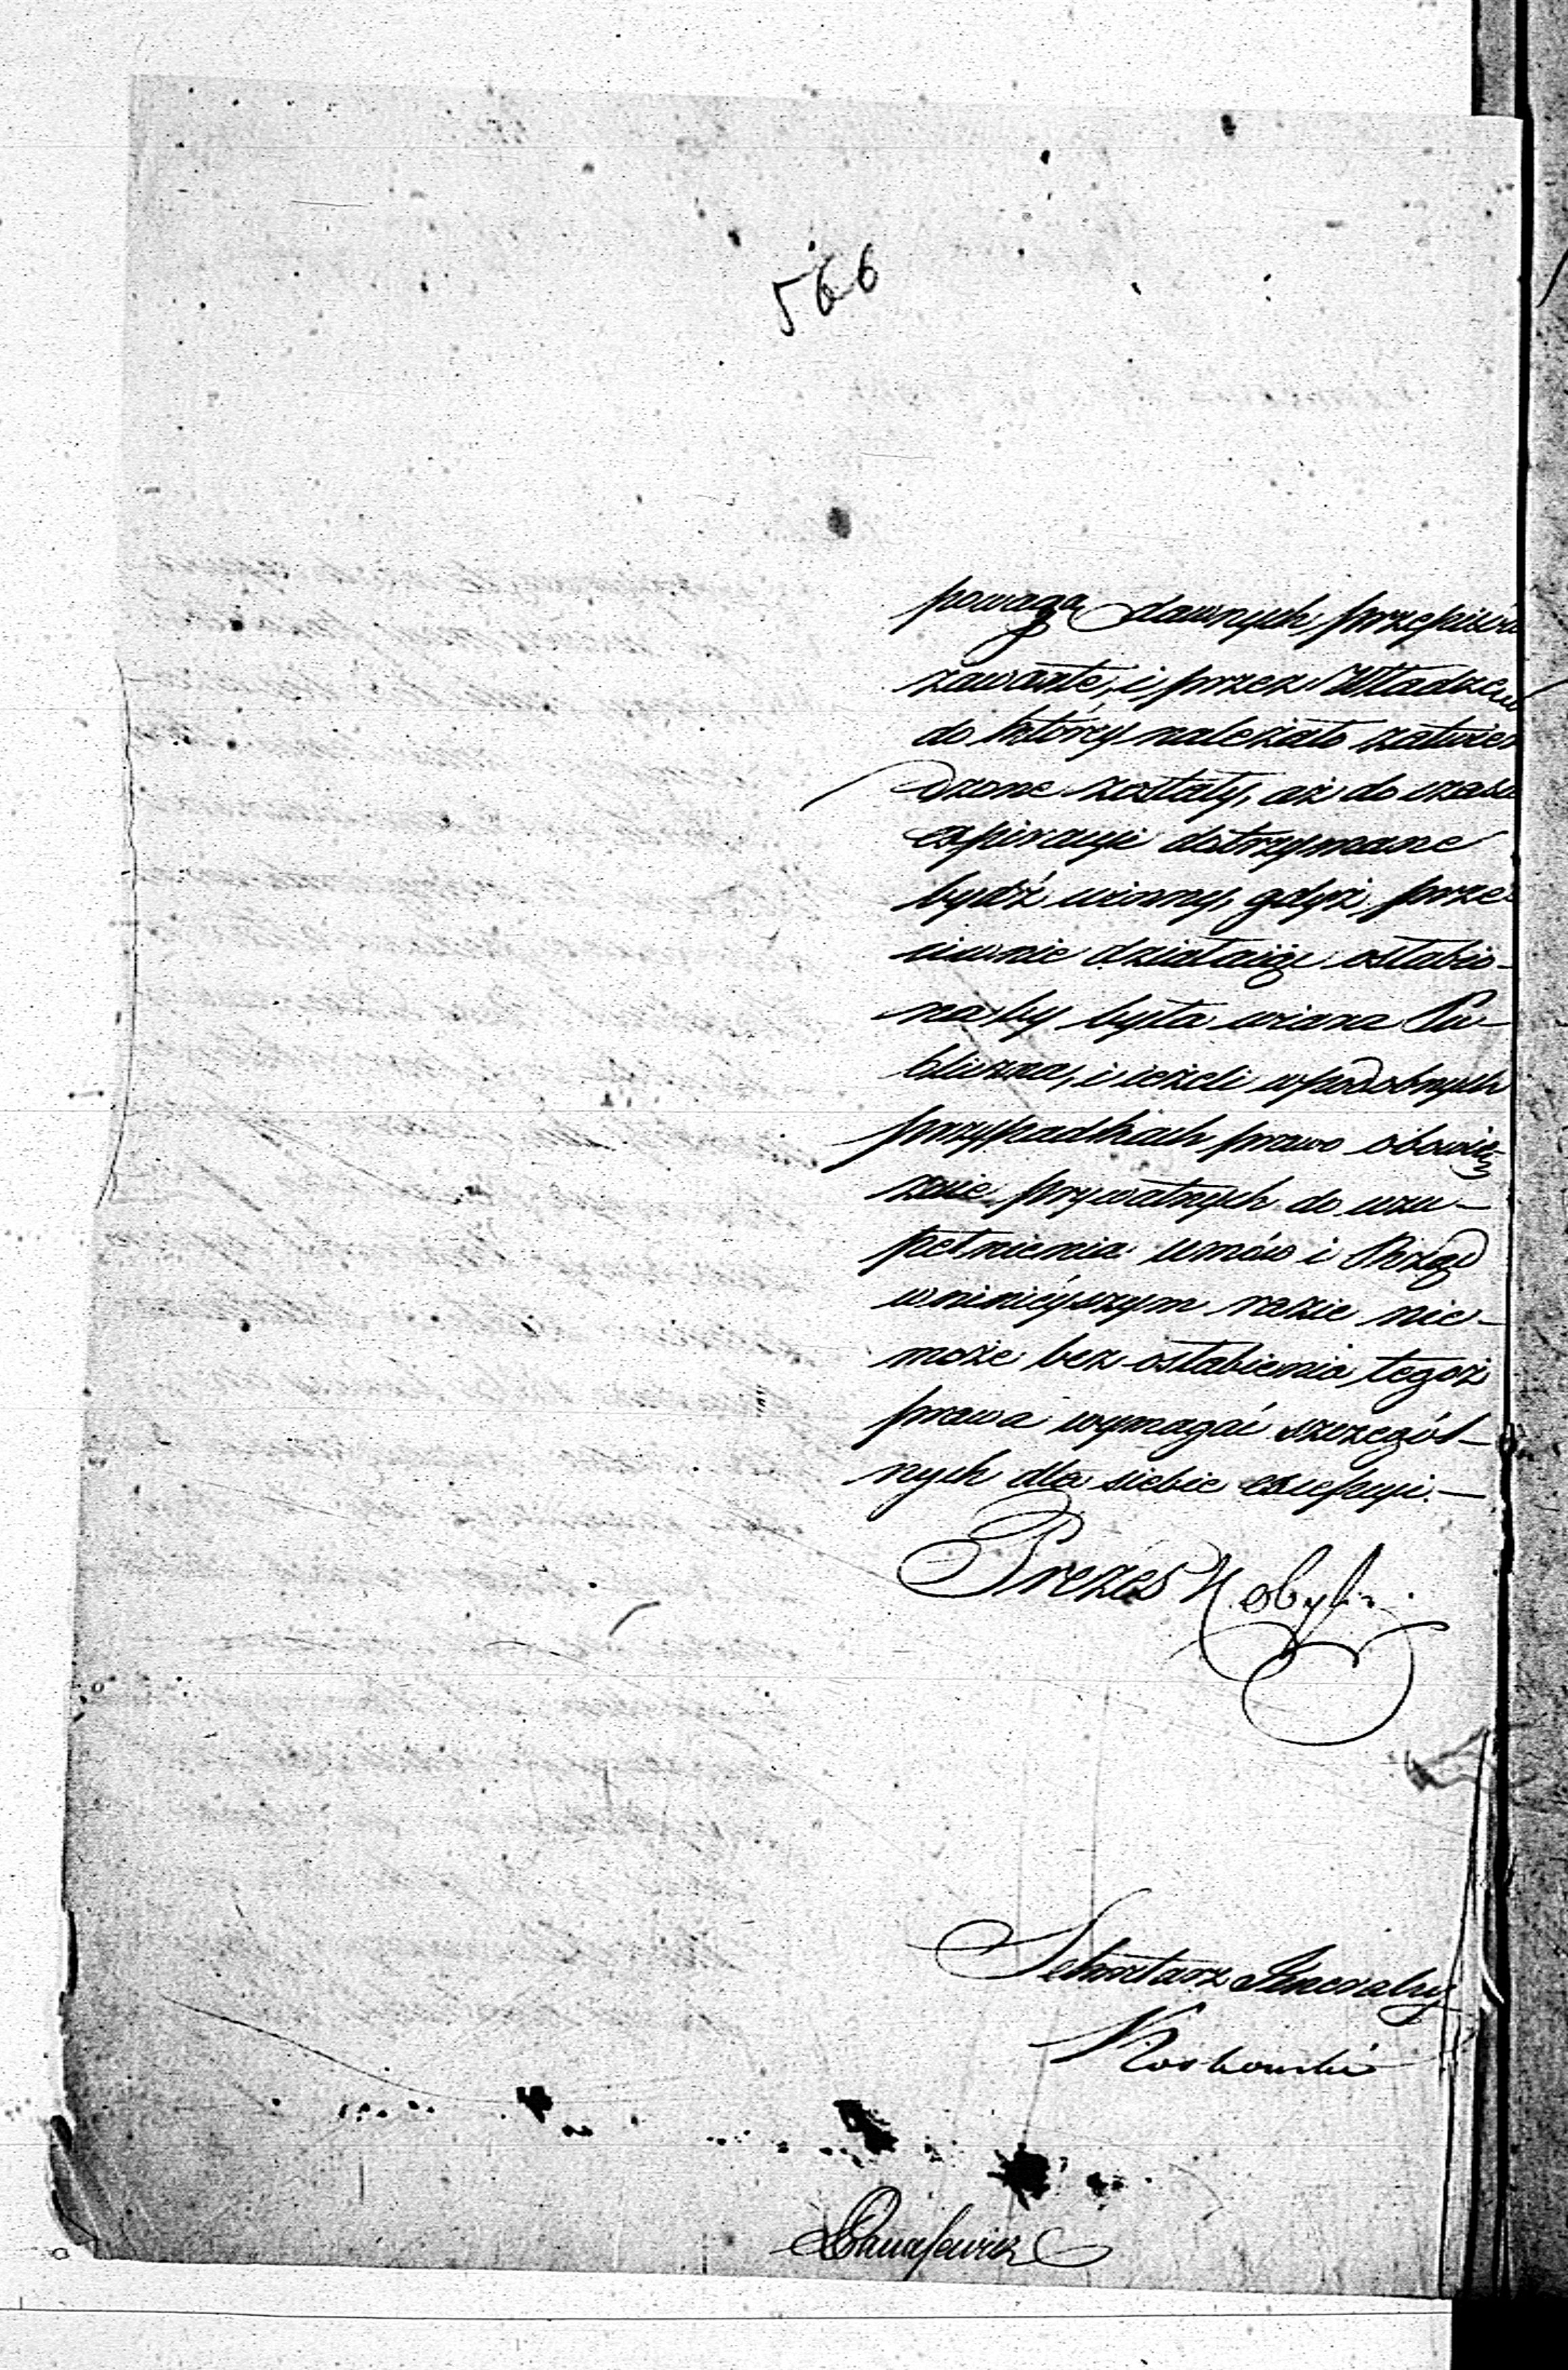 566
powagą dawnych przepisów
zawarte, i przez Władzew
do który należało zatwier
dzone zostały, aż do czasu
expiracyi dotrzymane
bydź winny, gdyż prze-
ciwnie działaiąc osłabio-
na by była wiara Pu-
bliczna, i ieżeli w podobnych
przypadkach prawo obowią
zuie prywatnych do uzu-
pełnienia umów i Rząd
w ninieyszym razie nie-
może bez osłabienia tegoż
prawa wymagać szczegól-
nych dla siebie excepcyi.—
Prezes
Sekretarz Jeneralny